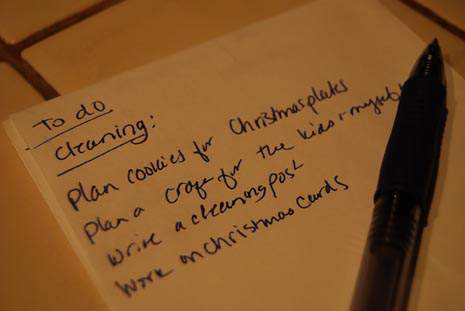 To do
Cleaning:
Plan cookies for Christmas plates
Plan a craft for the kids + myself
Write a cleaning post
Work on Christmas cards